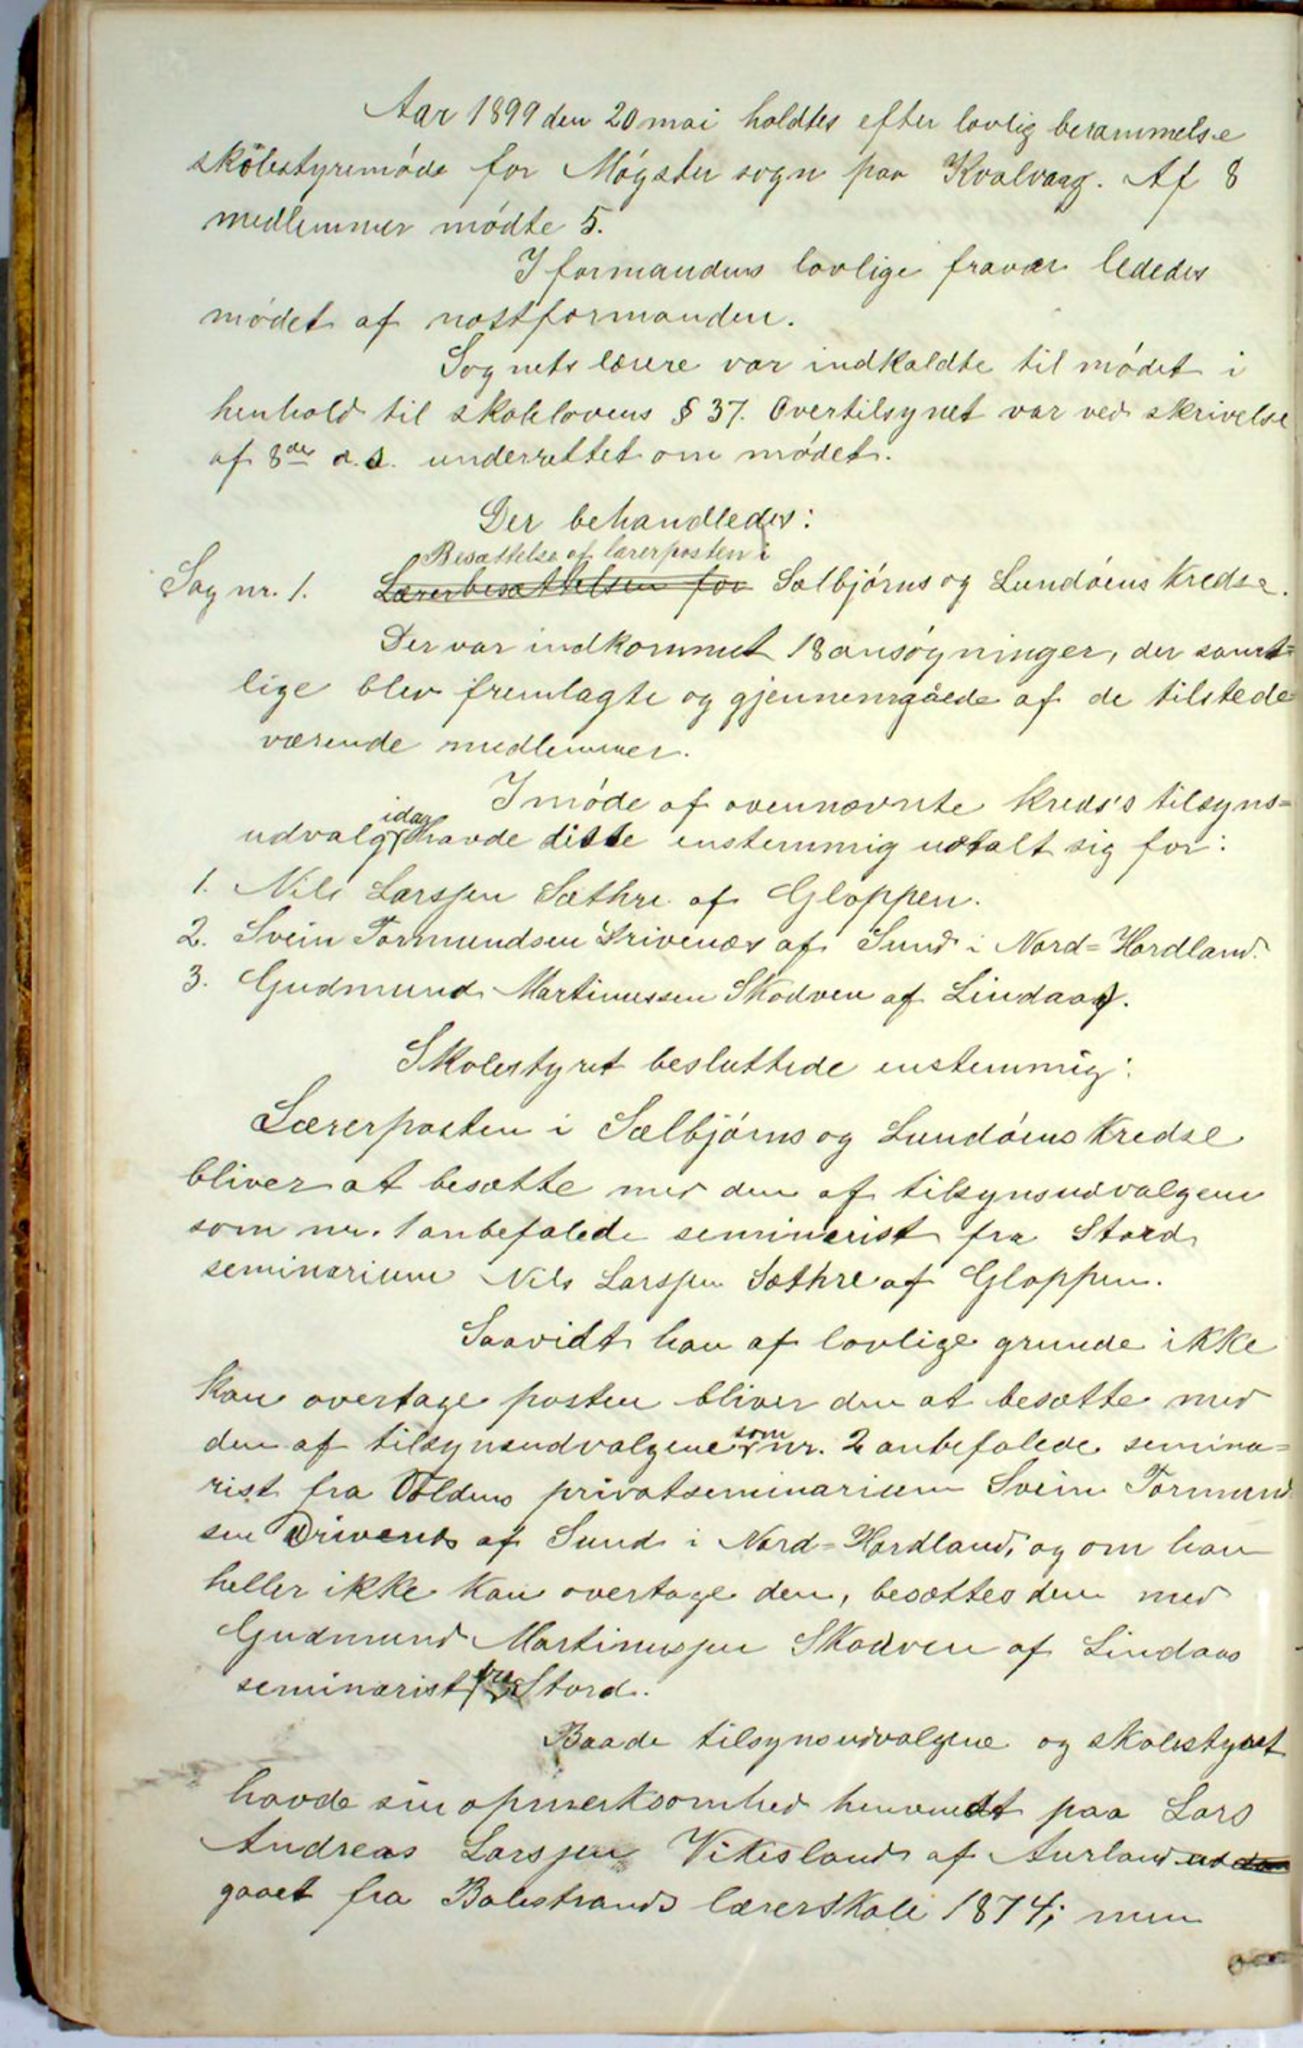 Aar 1899 den 20 mai holdtes efter lovlig berammelse
skolestyremøde for Møgster sogn paa Kvalvaag. Af 8
medlemmer mødte 5.
I formandens lovlige fravær lededes
mødet af næstformanden.
Sognets lærere var indkaldte til mødet i
henhold til skolelovens § 37. Overtilsynet var ved skrivelse
af 8de d.s. underrettet om mødet.
Der behandledes:
Besættelse af lærerposten i
Sag nr. 1. Lærerbesættelsen for Selbjørns og Lundøens kredse.
Der var indkommet 18 ansøgninger, der samt=
lige blev fremlagte og gjennemgåede af de tilstede=
værende medlemmer.
I møde af ovennævnte kreds's tilsyns=
idag
udvalg havde disse enstemmig udtalt sig for:
1. Nils Larssen Sæthre af Gloppen.
2. Svein Tormundsen Drivenæs af Sund i Nord=Hordland.
3. Gudmund Martinussen Skodven af Lindaas.
Skolestyret besluttede enstemmig:
Lærerposten i Selbjørns og Lundøens kredse
bliver at besætte med den af tilsynsudvalgene
som nr. 1 anbefalede seminarist fra Stord
seminarium Nils Larssen Sæthre af Gloppen.
Saavidt han af lovlige grunde ikke
kan overtage posten bliver den at besætte med
den af tilsynsudvalgene som nr. 2 anbefalede semina=
rist fra Voldens privatseminarium Svein Tormund
sen Drivenes af Sund i Nord=Hordland, og om han
heller ikke kan overtage den, besættes den med
Gudmund Martinussen Skodven af Lindaas
seminarist fra Stord.
Baade tilsynsudvalgene og skolestyret
havde sin opmerksomhed henvendt paa Lars
Andreas Larssen Vikesland af Aurland ud
gaaet fra Balestrands lærerskole 1874; men